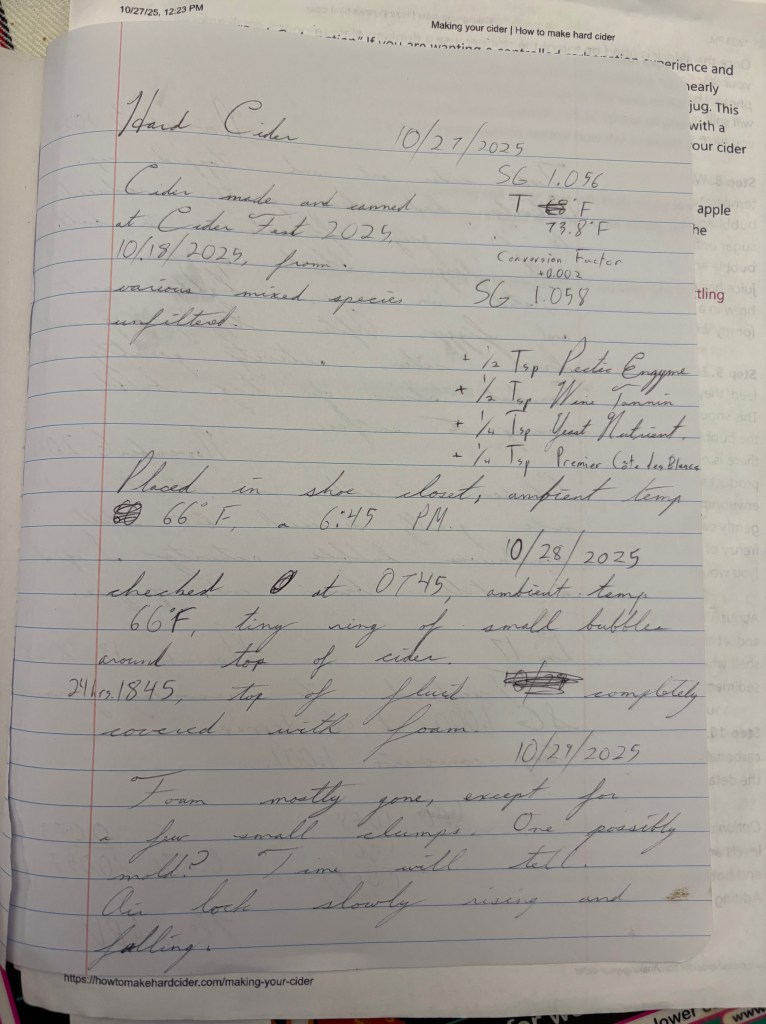 10/27/25, 12:23 PM
Making your cider | How to make hard cider
erience and
nearly
jug. This
with a
our cider
Hard Cider 10/27/2025
SG 1.056
Cider made and canned T °F
at Cider Fest 2025, 73.8°F
10/18/2025, from Conversion Factor
+0.002
various mixed species SG 1.058
unfiltered.
apple
he
tling
+ 1/2 Tsp Pectic Engyme
+ 1/2 Tsp Wine Tannin
+ 1/4 Tsp Yeast Nutrient.
+ 1/4 Tsp Premier Côte des Blancs
Placed in shoe closet, ambient temp
66°F, @ 6:45 PM.
10/28/2025
checked at 0745, ambient temp
66°F, tiny ring of small bubbles
around top of cider.
24hrs. 1845, top of fluid completely
covered with foam.
10/29/2025
Foam mostly gone, except for
a few small clumps. One possibly
mold? Time will tell.
Air lock slowly rising and
falling.
https://howtomakehardcider.com/making-your-cider
lower
www